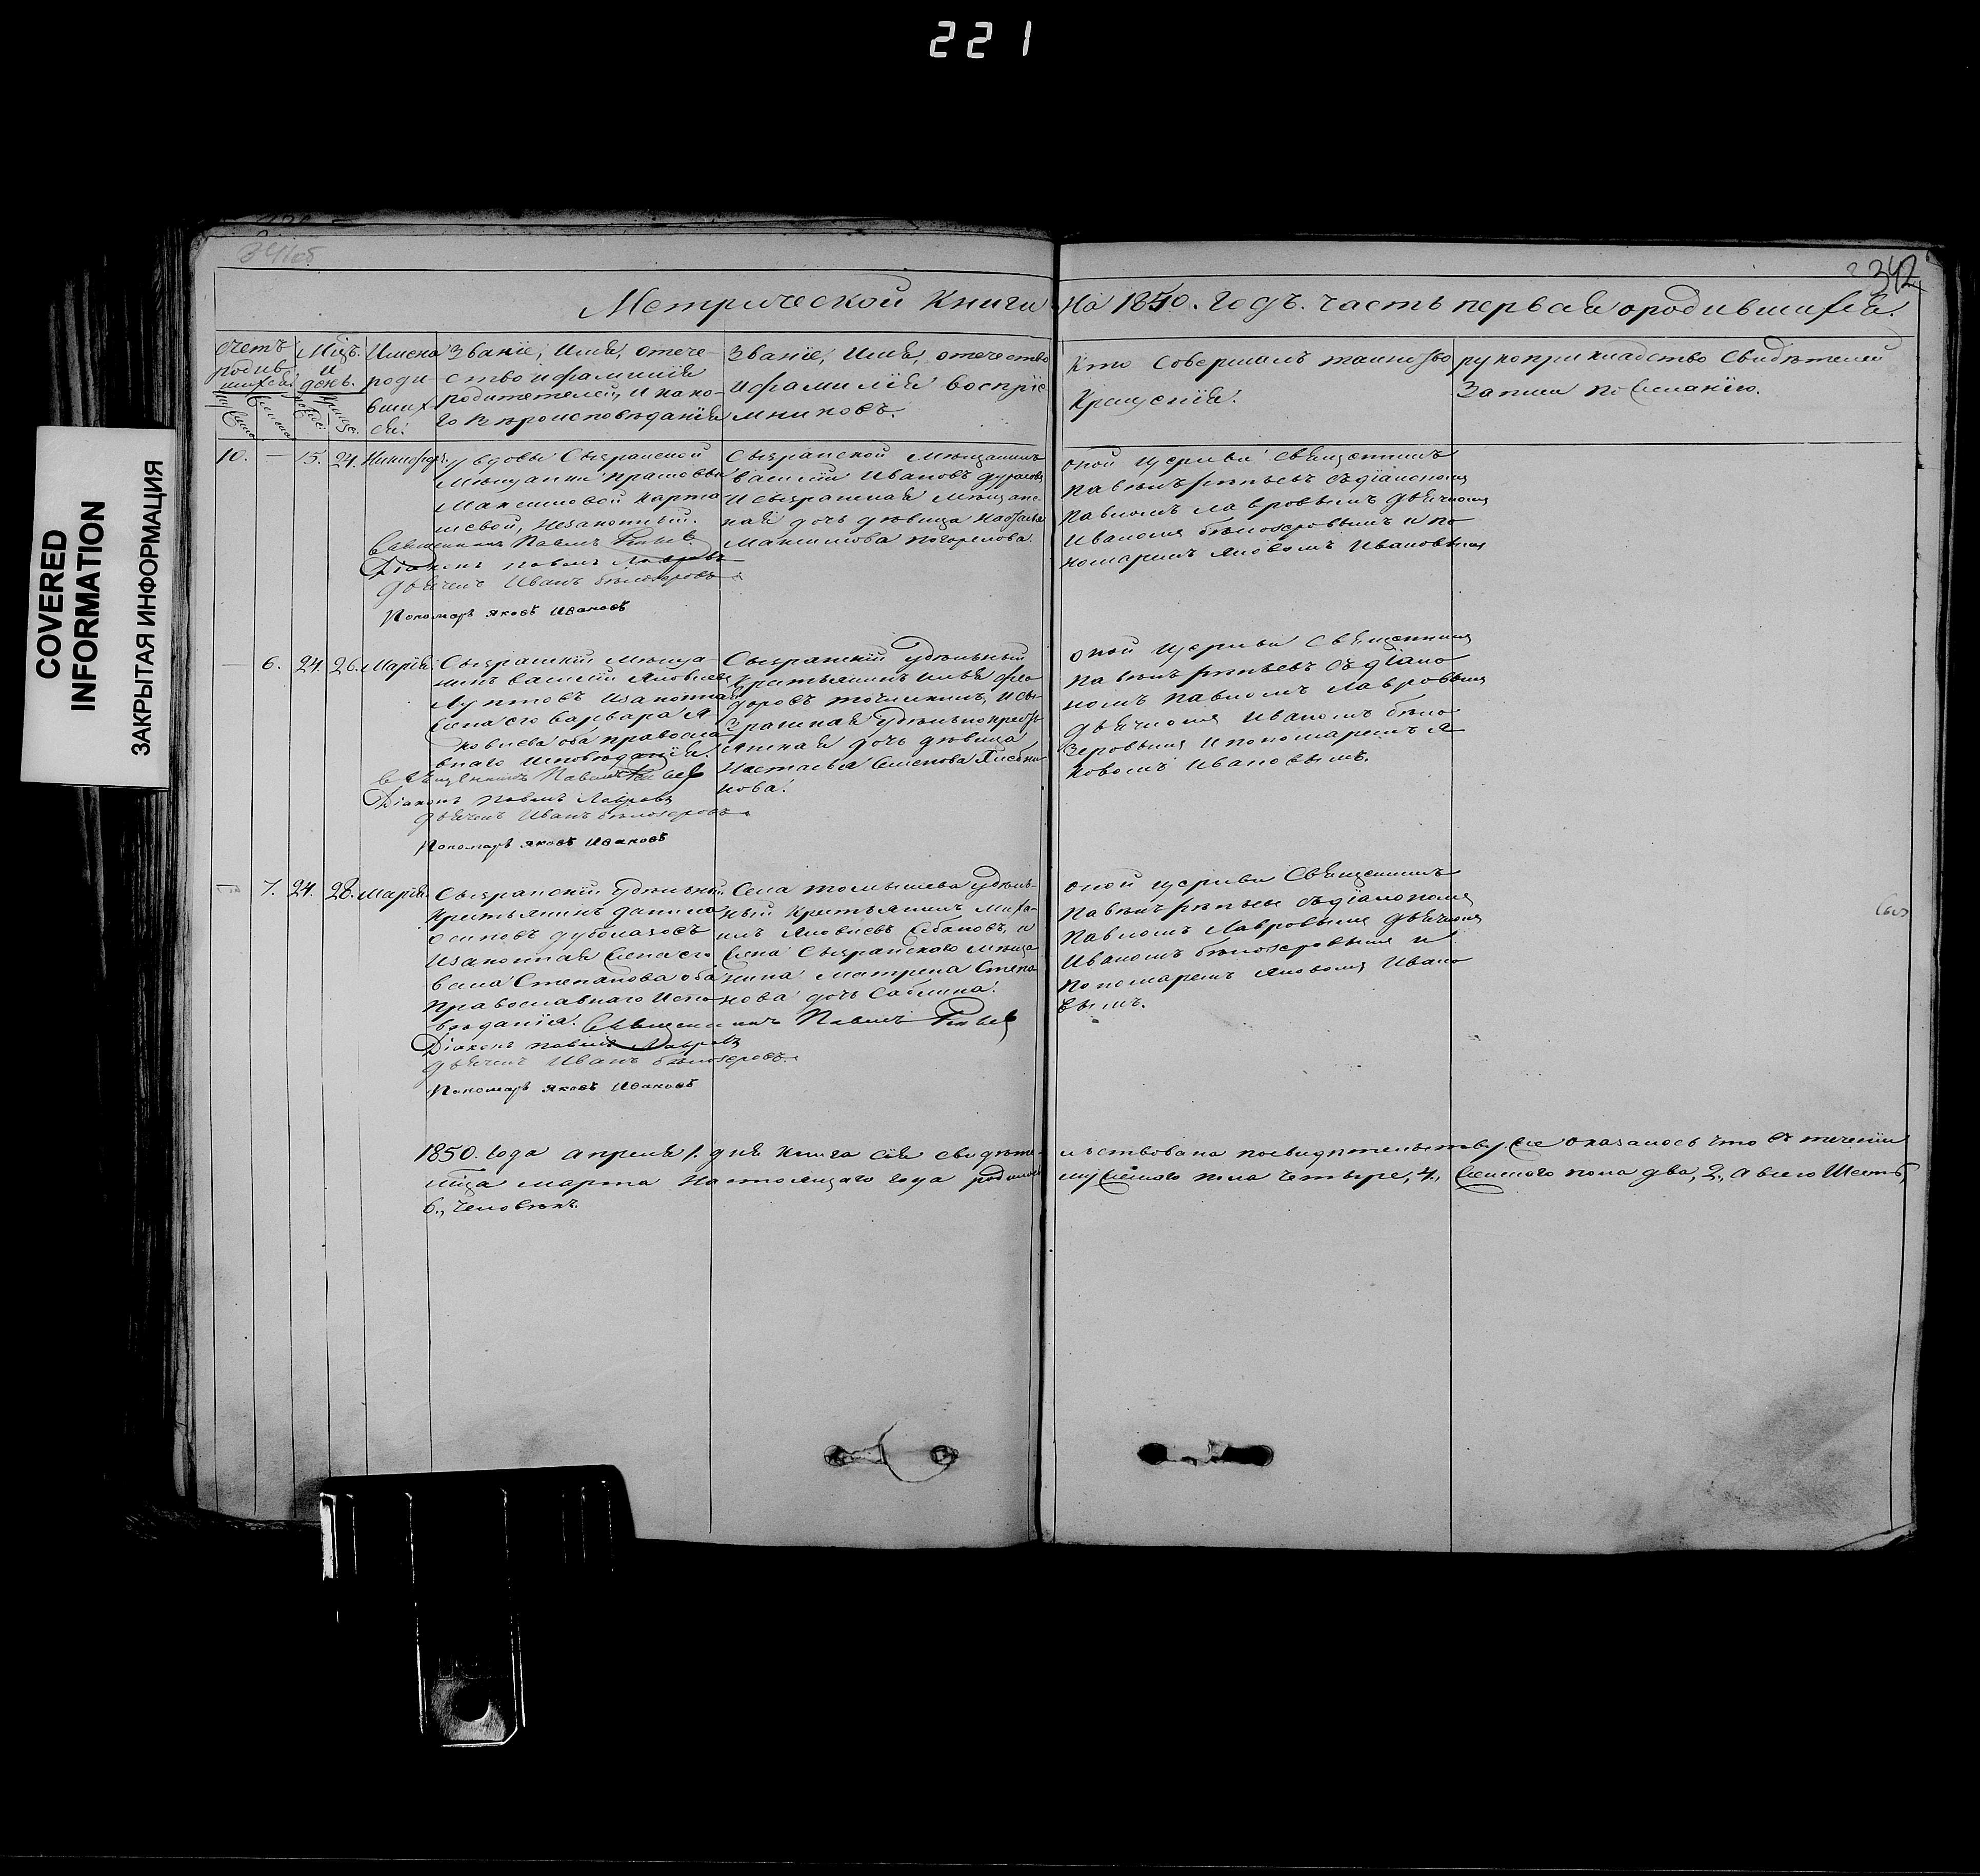 221
COVERED
INFORMATION
ЗАКРЫТАЯ ИНФОРМАЦИЯ
341об
342
Метрической Книги на 1850. Годъ. часть первая ородившихся.
Счетъ родившихся
Мцъ. и день.
Имена родившихся.
Званіе, Имя, отечество и фамилія родителей, и какого вѣроисповѣданія
Званіе, Имя, отечество и фамилія воспріемниковъ.
Кто Совершалъ таинство Крещенія.
рукоприкладство Свидѣтелей Записи по Желанію.
10. — 15. 24. Никифоръ.
у вдовы Сызранской
Мѣщанки
Максимовой
незаконный.
Священникъ Павелъ
Діаконъ Павелъ Лавровъ
дьячекъ Иванъ Бѣлозеровъ
Пономарь Яковъ Ивановъ
Сызранской Мѣщанинъ
Василій Ивановъ
и Сызранская Мѣщанс-
кая дочь дѣвица
Максимова Погорелова.
оной Церкви Священникъ
Павелъ съ діакономъ
Павломъ Лавровымъ дьячкомъ
Иваномъ Бѣлозеровымъ и по
номаремъ Яковомъ Ивановымъ
— 6. 24. 26. Марія.
Сызранскій Мѣща-
нинъ Василій Яковлевъ
и законная
жена его Варвара Я
ковлева оба православ
наго исповѣданія.
Священникъ Павелъ
Діаконъ Павелъ Лавровъ
дьячекъ Иванъ Бѣлозеровъ
Пономарь Яковъ Ивановъ
Сызранскій Удѣльный
Крестьянинъ Илья Фео
доровъ Точилкинъ, и Сы-
зранская Удѣльно кресть
янская дочь дѣвица
Настасья Семенова
кова.
оной Церкви Священникъ
Павелъ съ діако
номъ Павломъ Лавровымъ
дьячкомъ Иваномъ Бѣло
зеровымъ и пономаремъ Я
ковомъ Ивановымъ.
— 7. 24. 28. Марія.
Сызранскій Удѣльный
Крестьянинъ Данила
Осиповъ
и законная жена его
Степанова оба
Православнаго Испо
вѣданія. Священникъ Павелъ
Діаконъ Павелъ Лавровъ
дьячекъ Иванъ Бѣлозеровъ
Пономарь Яковъ Ивановъ
Села Томышева Удѣль-
ный Крестьянинъ Миха-
илъ Яковлевъ и
жена Сызранскаго Мѣща
нина Матрена Степа
нова дочь Саблина.
оной Церкви Священникъ
Павелъ съ діакономъ
Павломъ Лавровымъ дьячкомъ
Иваномъ Бѣлозеровымъ и
Пономаремъ Яковомъ Ивано
вымъ.
1850. Года Апреля 1. дня Книга сія свидѣтельствована по свидѣтельству же оказалось что въ теченіи
мца Марта настоящаго года родилось мужескаго пола четыре, 4., женскаго пола два, 2., а всего Шесть,
6., Человѣкъ.